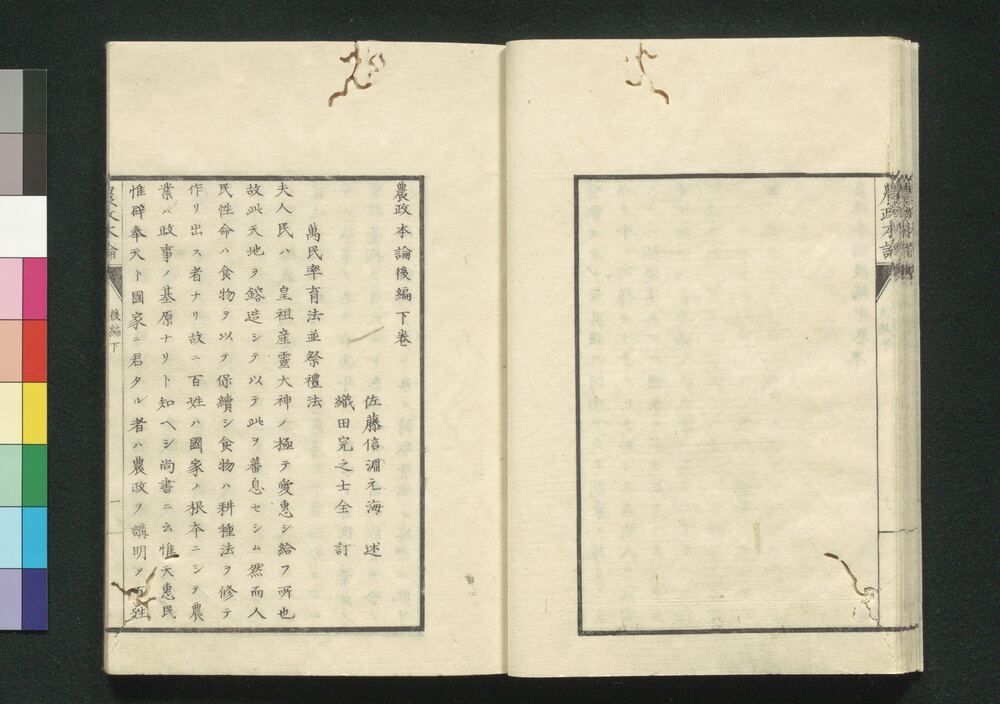 農政本論
農政本論後編下卷
佐藤信淵元海 述
織田完之士全 訂
萬民率育法並祭禮法
夫人民ハ皇祖産靈大神ノ極テ愛惠シ給フ所也
故此天地ヲ鎔造シテ以テ此ヲ蕃息セシム然而人
民性命ハ食物ヲ以テ保續シ食物ハ耕種法ヲ修テ
作リ出ス者ナリ故ニ百姓ハ國家ノ根本ニシテ農
業ハ政事ノ基原ナリト知ヘシ尚書ニ云惟天惠民
惟辟奉天ト國家ニ君タル者ハ農政ヲ講明メ百姓
農政本論
後編下
一